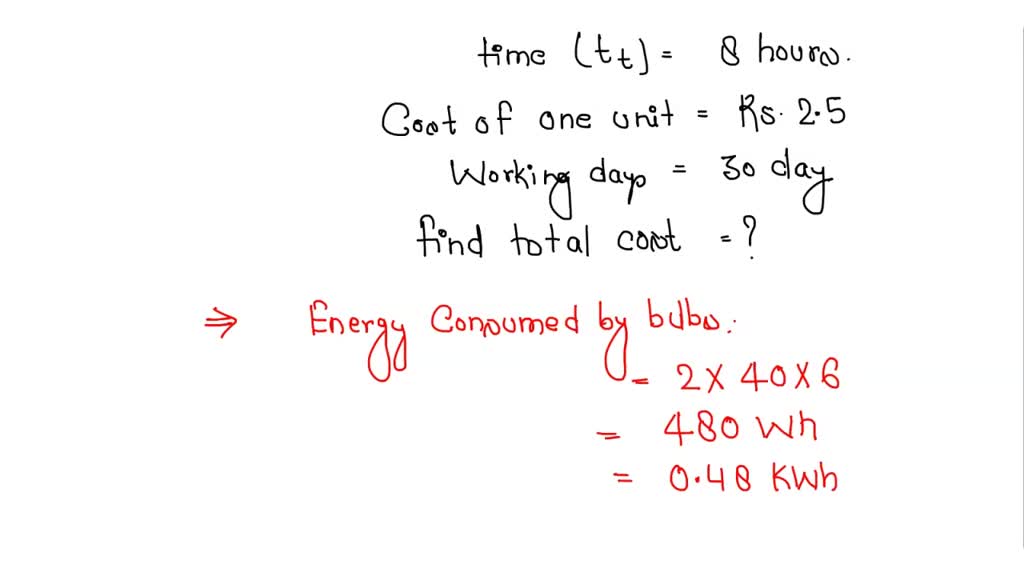 time (tt) = 8 hours.
Cost of one unit = Rs. 2.5
Working days = 30 day
find total cost = ?
⇒ Energy Consumed by bulbs.
= 2 X 40 X 6
= 480 Wh
= 0.48 KWh